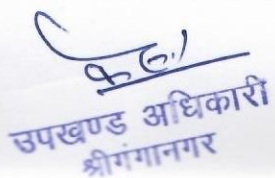 उपखण्ड अधिकारी
श्रीगंगानगर